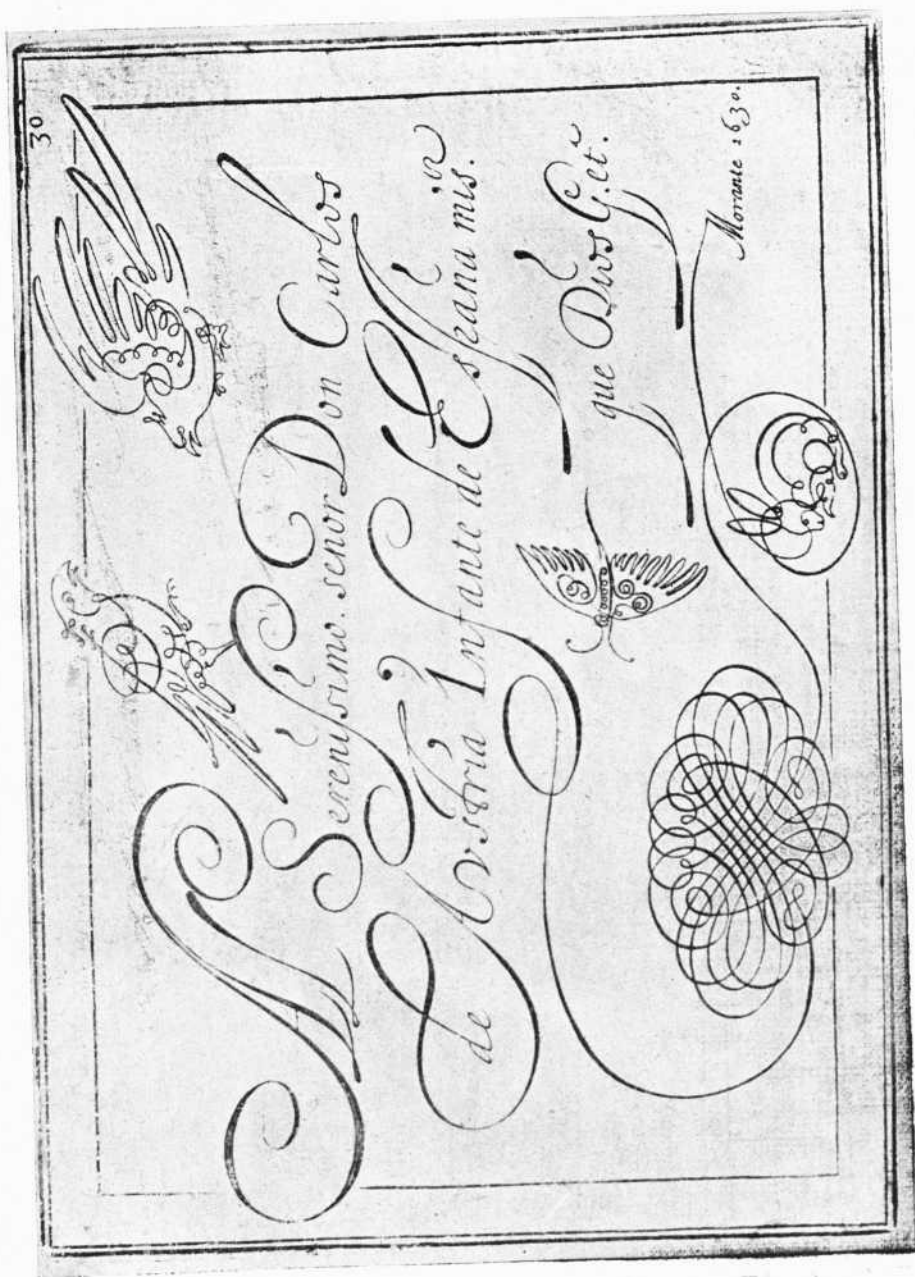 30
Al Serenissimo. señor Don Carlos
de Avstria Infante de España mi s.or
que Dios G.e et.a
Morante 1630.